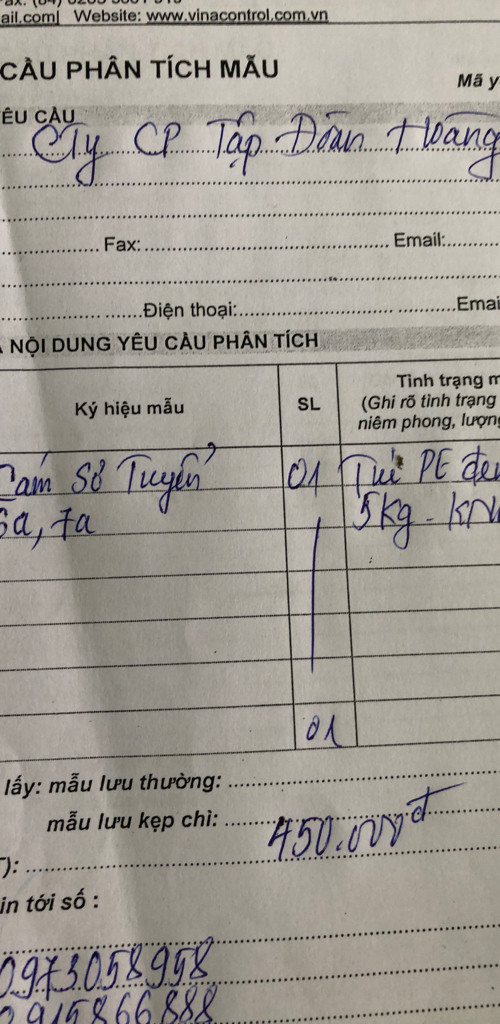 ail.com| Website: www.vinacontrol.com.vn
CẦU PHÂN TÍCH MẪU
Mã y
ÊU CẦU
CTy CP Tập Đoàn Hoàng
Fax: Email:
Điện thoại: Emai
NỘI DUNG YÊU CẦU PHÂN TÍCH
Ký hiệu mẫu SL Tình trạng m
(Ghi rõ tình trạng
niêm phong, lượng
Cám Sơ Tuyển 01 Túi PE đen
6a, 7a 5kg - KN
01
lấy: mẫu lưu thường:
mẫu lưu kẹp chì:
450.000đ
):
in tới số :
0973058958
0915866888